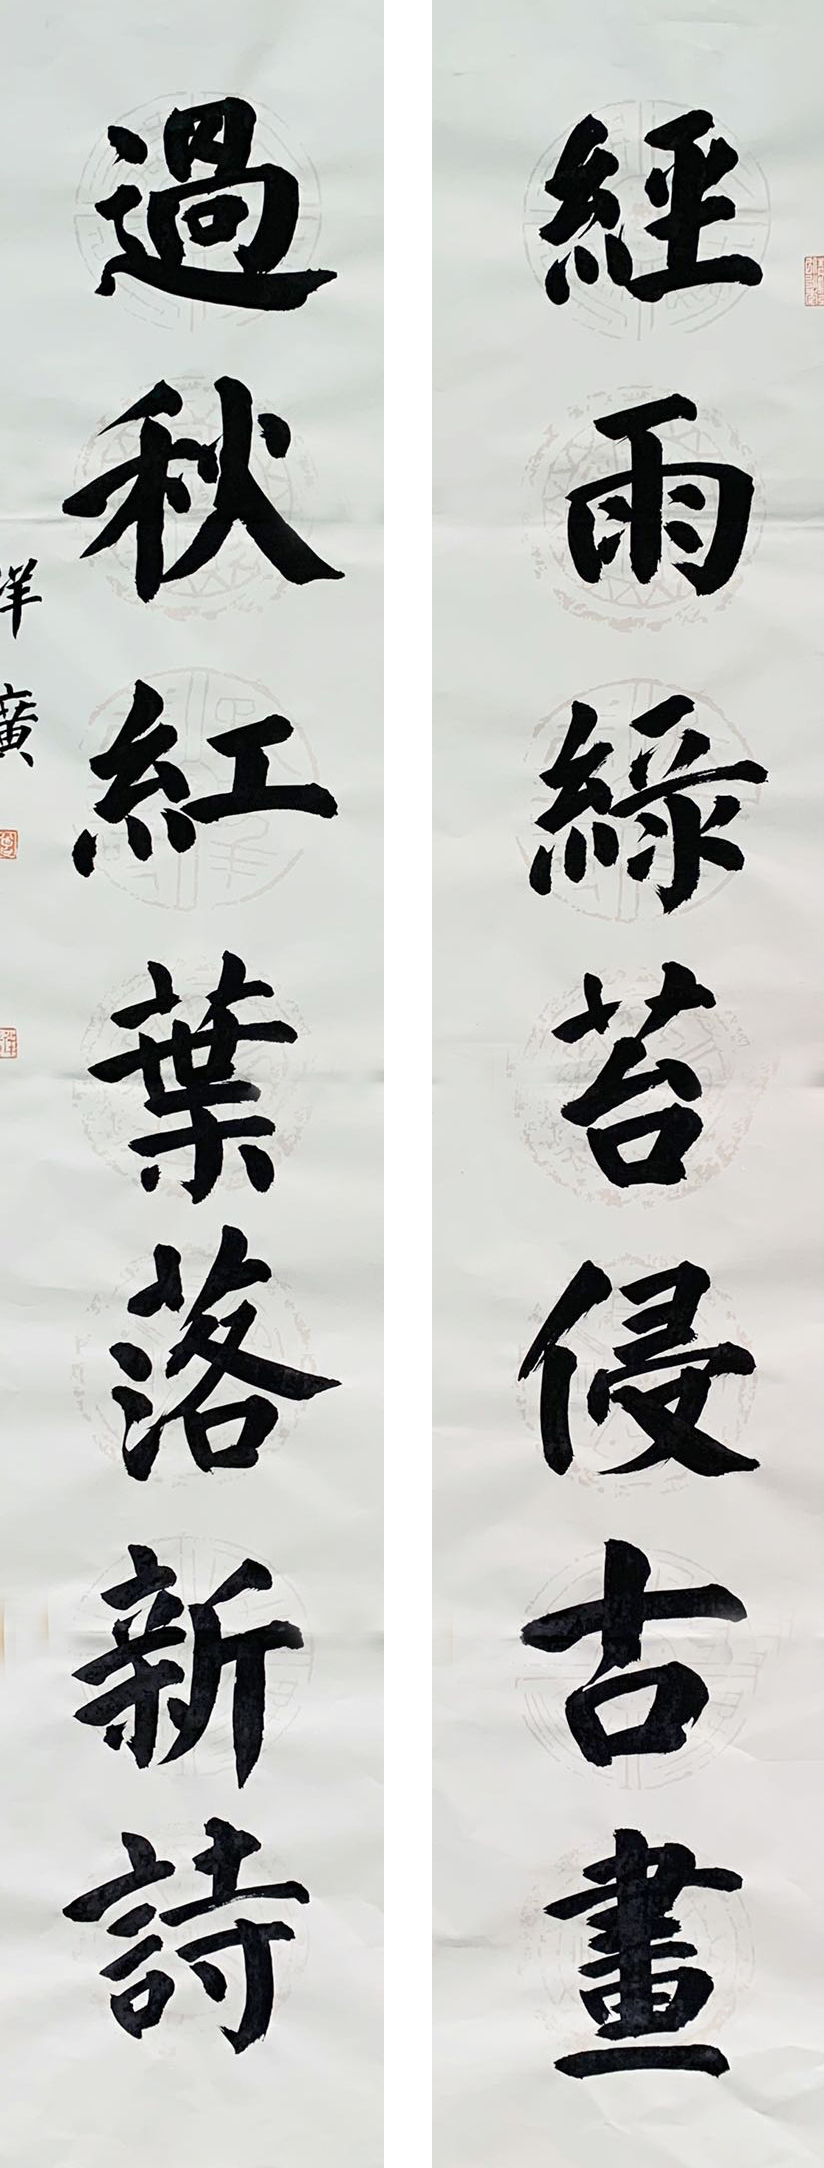 經雨綠苔侵古畫
過秋紅葉落新詩
洋廣